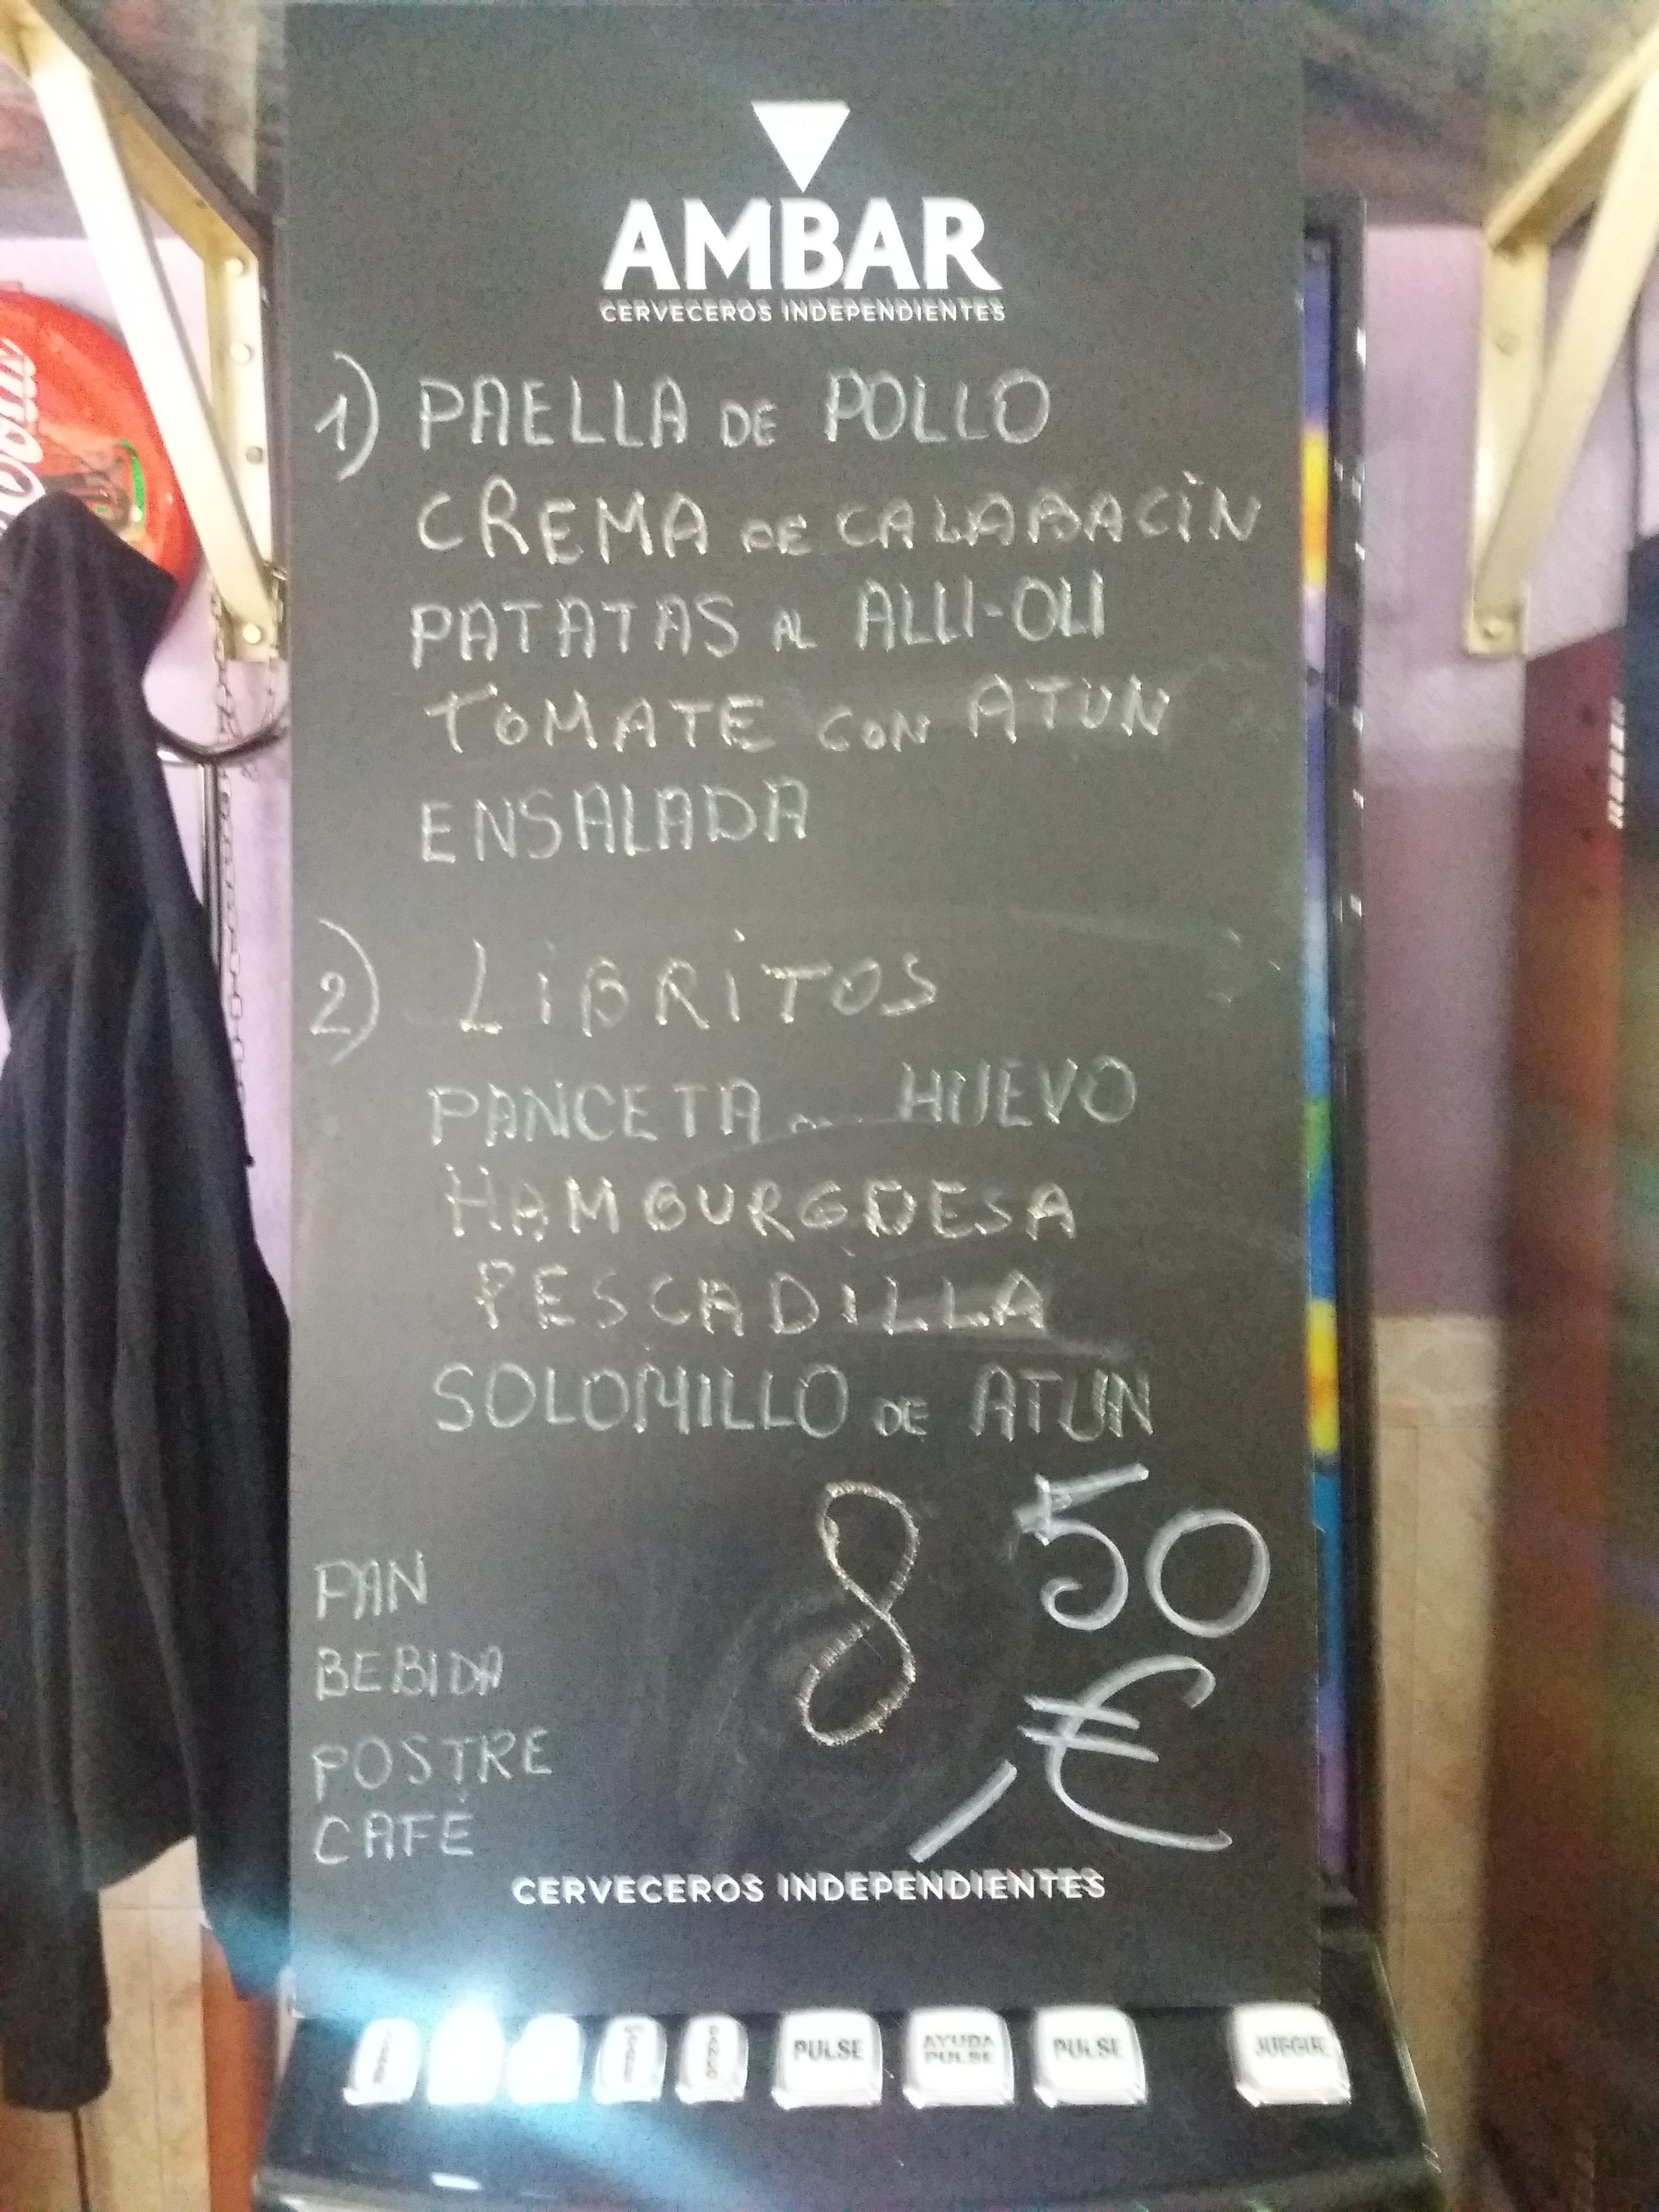 AMBAR
CERVECEROS INDEPENDIENTES
1) PAELLA DE POLLO
CREMA DE CALABACÌN
PATATAS AL ALLI-OLI
TOMATE CON ATUN
ENSALADA
2) LiBRiTOS
PANCETA ... HUEVO
HAMBURGDESA
PESCADiLLA
SOLOMILLO DE ATUN
8,50 €
PAN
BEBIDA
POSTRE
CAFE
CERVECEROS INDEPENDIENTES
PULSE AYUDA PULSE PULSE JUEGUE